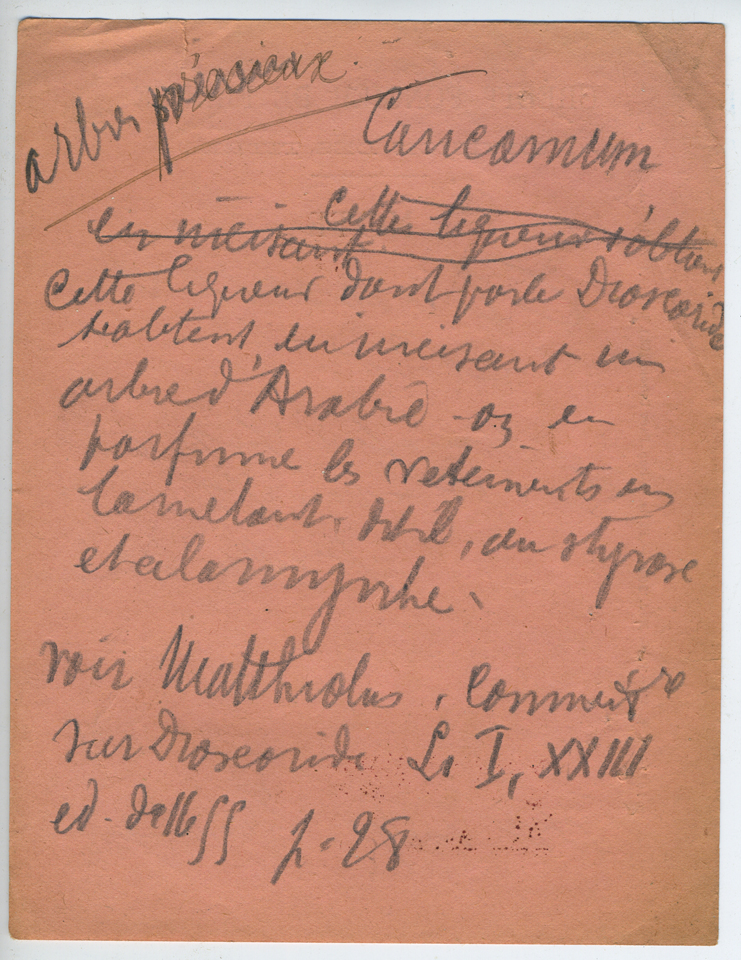 arbres précieux.
Cancamum
Cette liqueur s'obtient
en incisant
Cette liqueur dont parle Dioscoride
s'obtient en incisant un
arbre d'Arabie - on en
parfume les vêtements en
la mêlant, au styrax
et à la myrrhe.
voir Matthiolus, Comment
sur Dioscoride L. I, XXIII
ed. p. 98